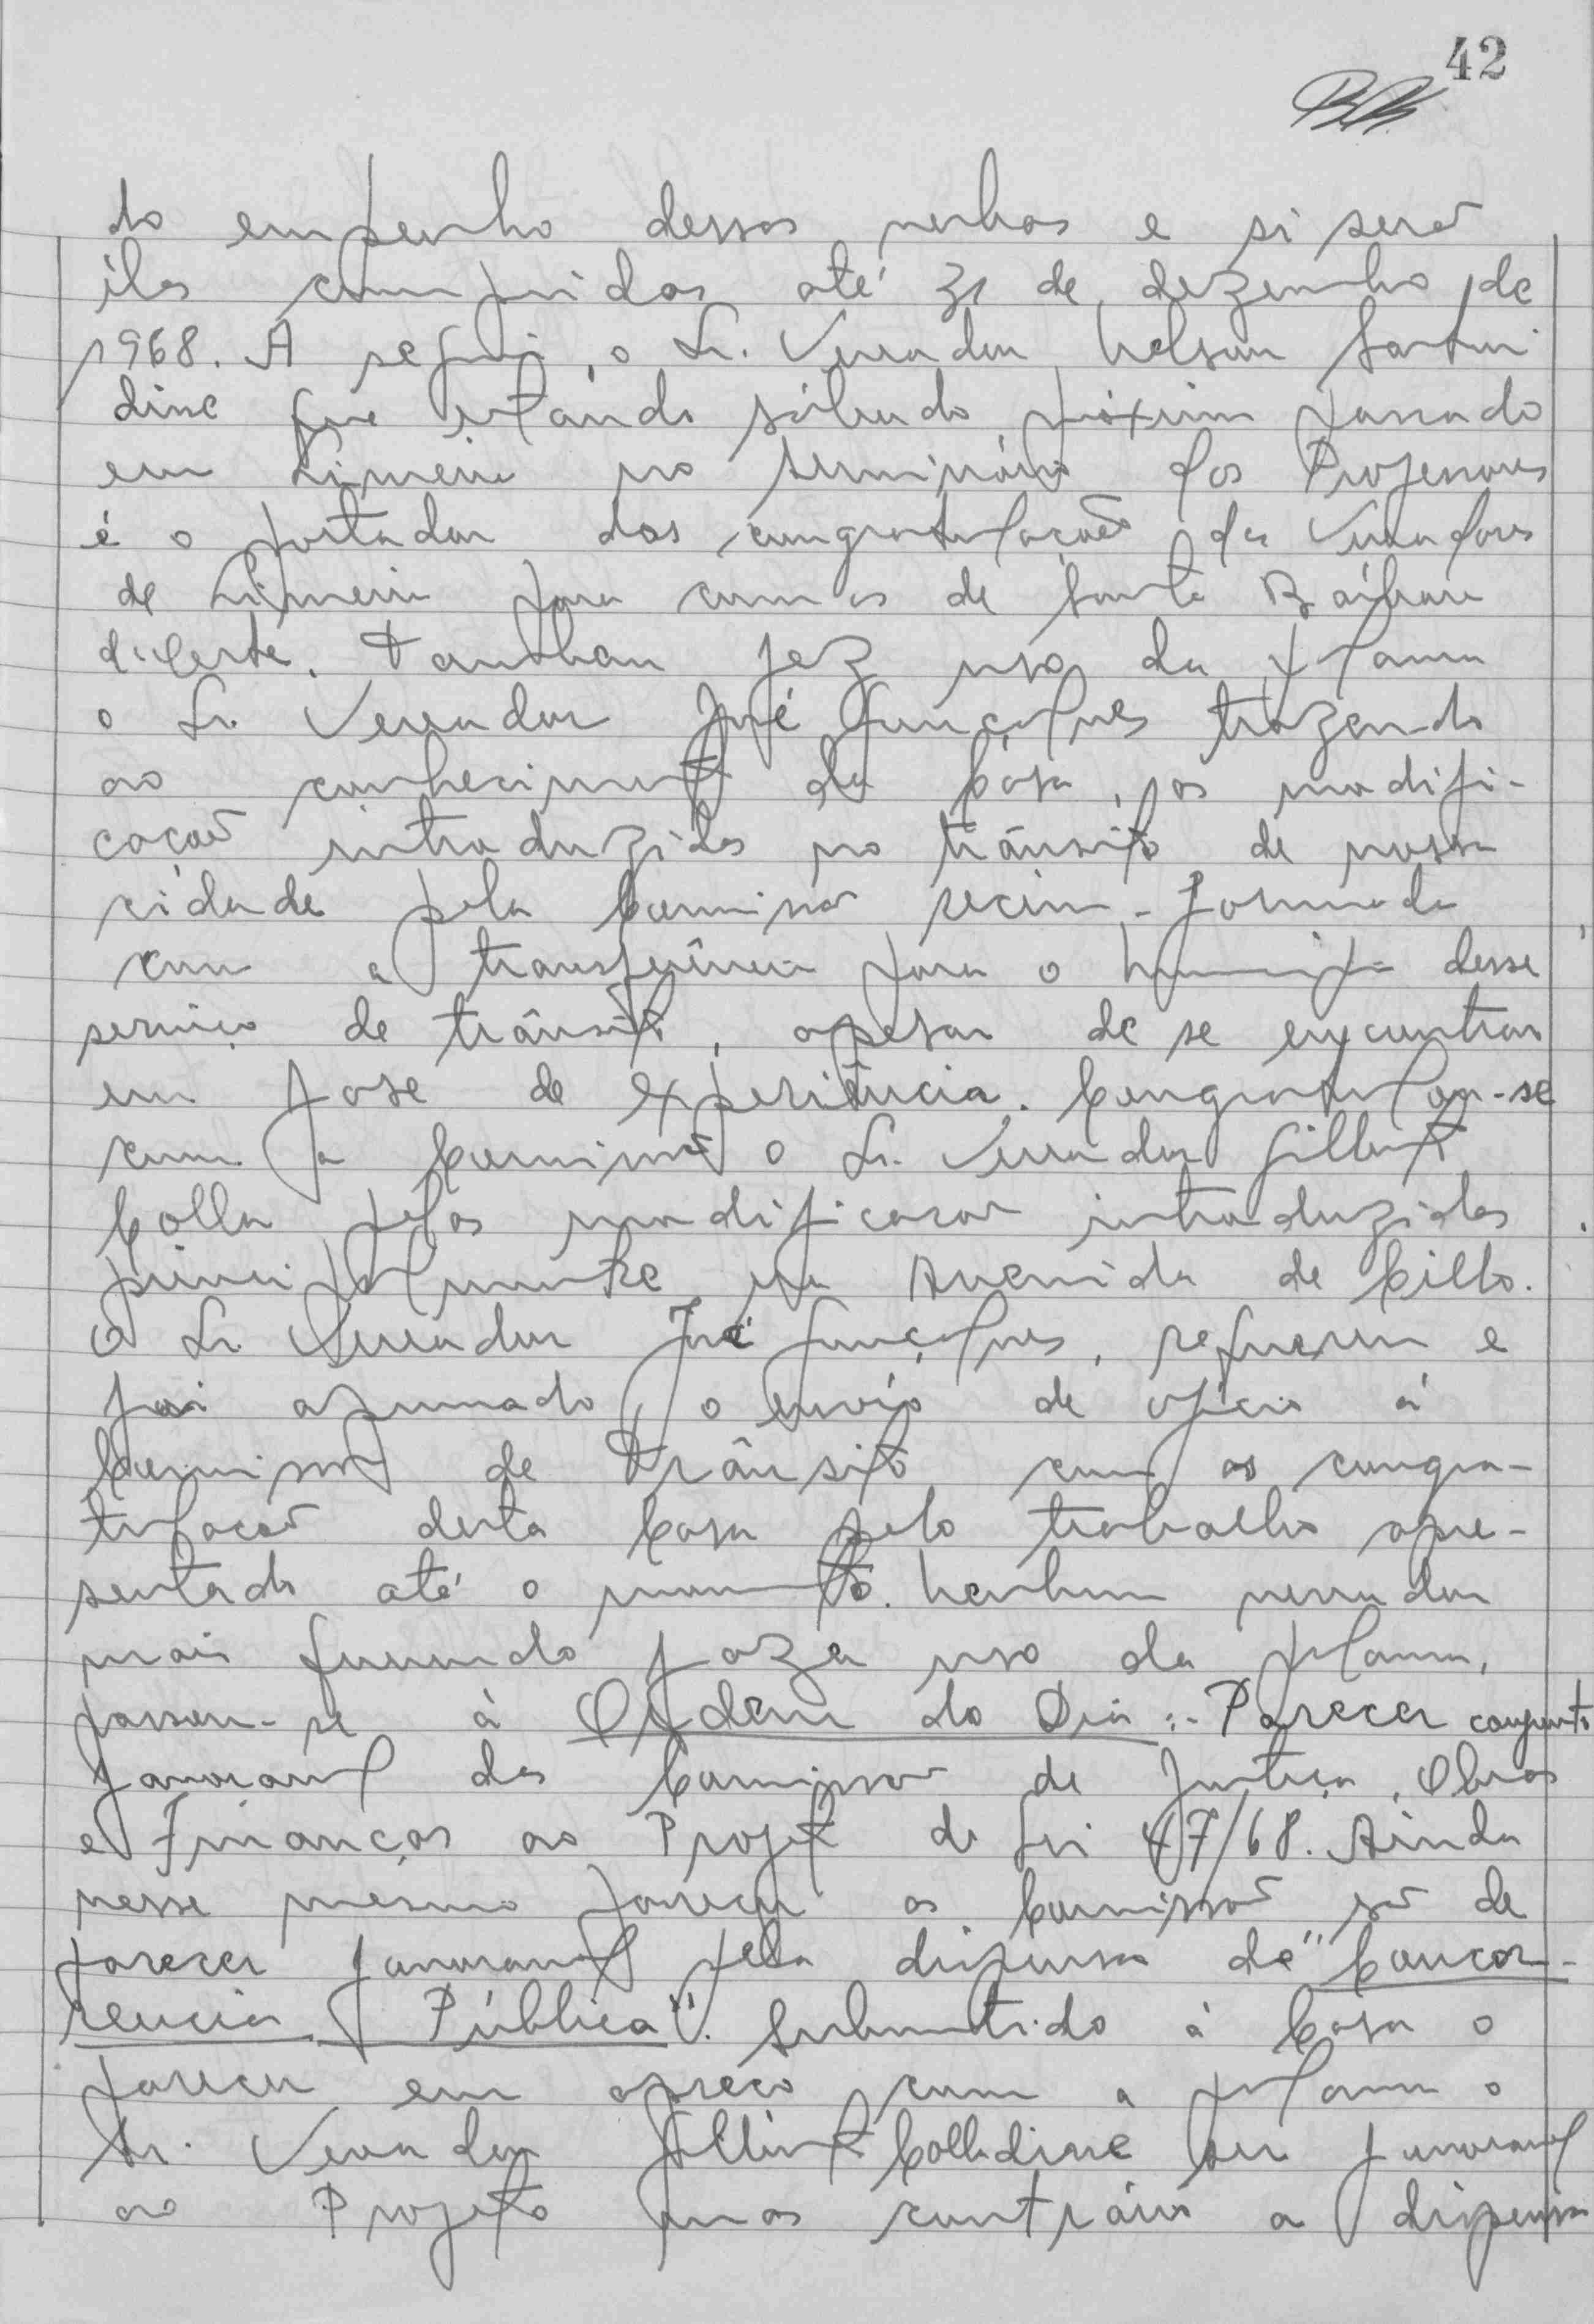 42
do empenho dessas verbas e si será
êles cumpridas até 31 de dezembro de
1968. A seguir, o Sr. Vereador Nelson Sartori
disse que estando sábado próximo passado
em Limeira no Seminário dos Professores
é o portador das congratulações dos Vereadores
de Limeira para com os de Santa Bárbara
d'Oeste. Tambem fez uso da palavra
o Sr. Vereador José Gonçalves trazendo
ao conhecimento da Casa, as modifi-
cações introduzidas no trânsito de nossa
cidade pela Comissão recem-formada
com a transferência para o município desse
serviço de trânsito, apesar de se encontrar
em fase de experiência. Congratulou-se
com a Comissão o Sr. Vereador Gilberto
Colla pelas modificações introduzidas
principalmente na Avenida de Cillo.
O Sr. Vereador José Gonçalves, requereu e
foi aprovado o envio de ofício á
Comissão de Trânsito com as congra-
tulações desta Casa pelo trabalho apre-
sentado até o momento. Nenhum vereador
mais querendo fazer uso da palavra,
passou-se à Ordem do Dia :- Parecer conjunto
favoravel das Comissões de Justiça, Obras
e Finanças ao Projeto de Lei 47/68. Ainda
nesse mesmo parecer as Comissões são de
parecer favoravel pela dispensa de "Concor-
rencia Pública". Submetido à Casa o
parecer em apreço com a palavra o
Sr. Vereador Gilberto Colla disse ser favoravel
ao Projeto mas contrário a dispensa